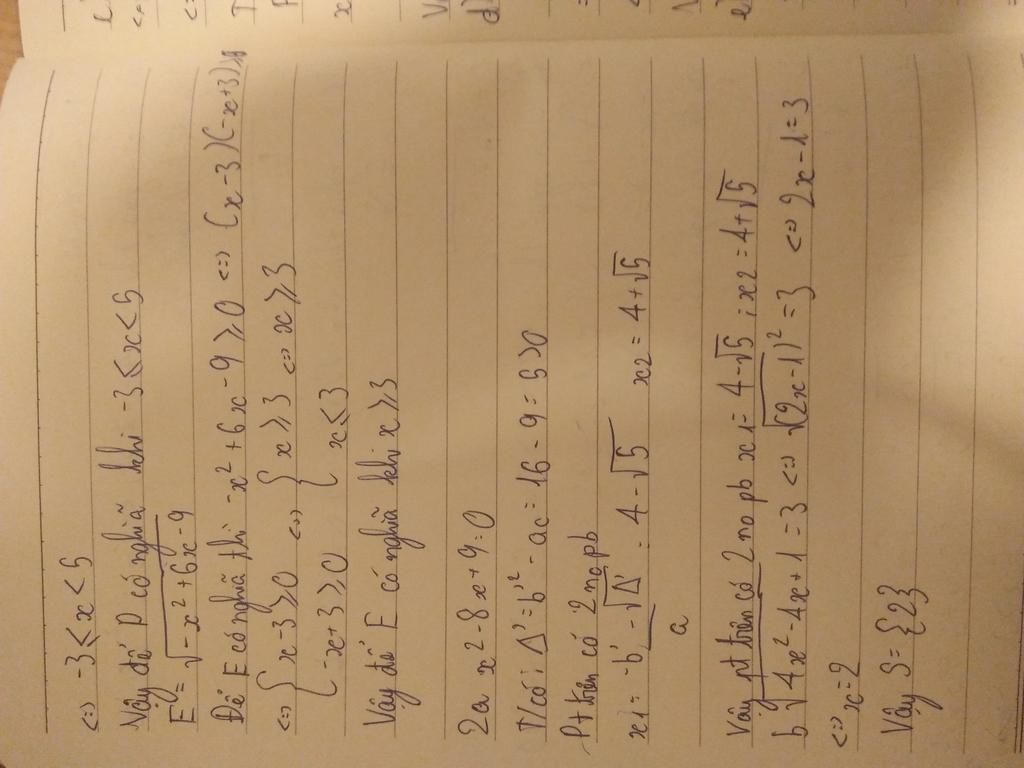 <=> -3 ≤ x < 5
Vậy để P có nghĩa khi -3 ≤ x < 5
E = √-x² + 6x - 9
Để E có nghĩa thì -x² + 6x - 9 ≥ 0 <=> (x - 3)(-x + 3) ≥ 0
<=> { x - 3 ≥ 0 <=> { x ≥ 3 <=> x ≥ 3
{ -x + 3 ≥ 0 { x ≤ 3
Vậy để E có nghĩa khi x ≥ 3
2a x² - 8x + 9 = 0
T/có: Δ' = b'² - ac = 16 - 9 = 5 > 0
Pt trên có 2 nₒ pb
x1 = -b' - √Δ' = 4 - √5 x2 = 4 + √5
a
Vậy pt trên có 2 nₒ pb x1 = 4 - √5 ; x2 = 4 + √5
b √4x² - 4x + 1 = 3 <=> √(2x - 1)² = 3 <=> 2x - 1 = 3
<=> x = 2
Vậy S = {2}